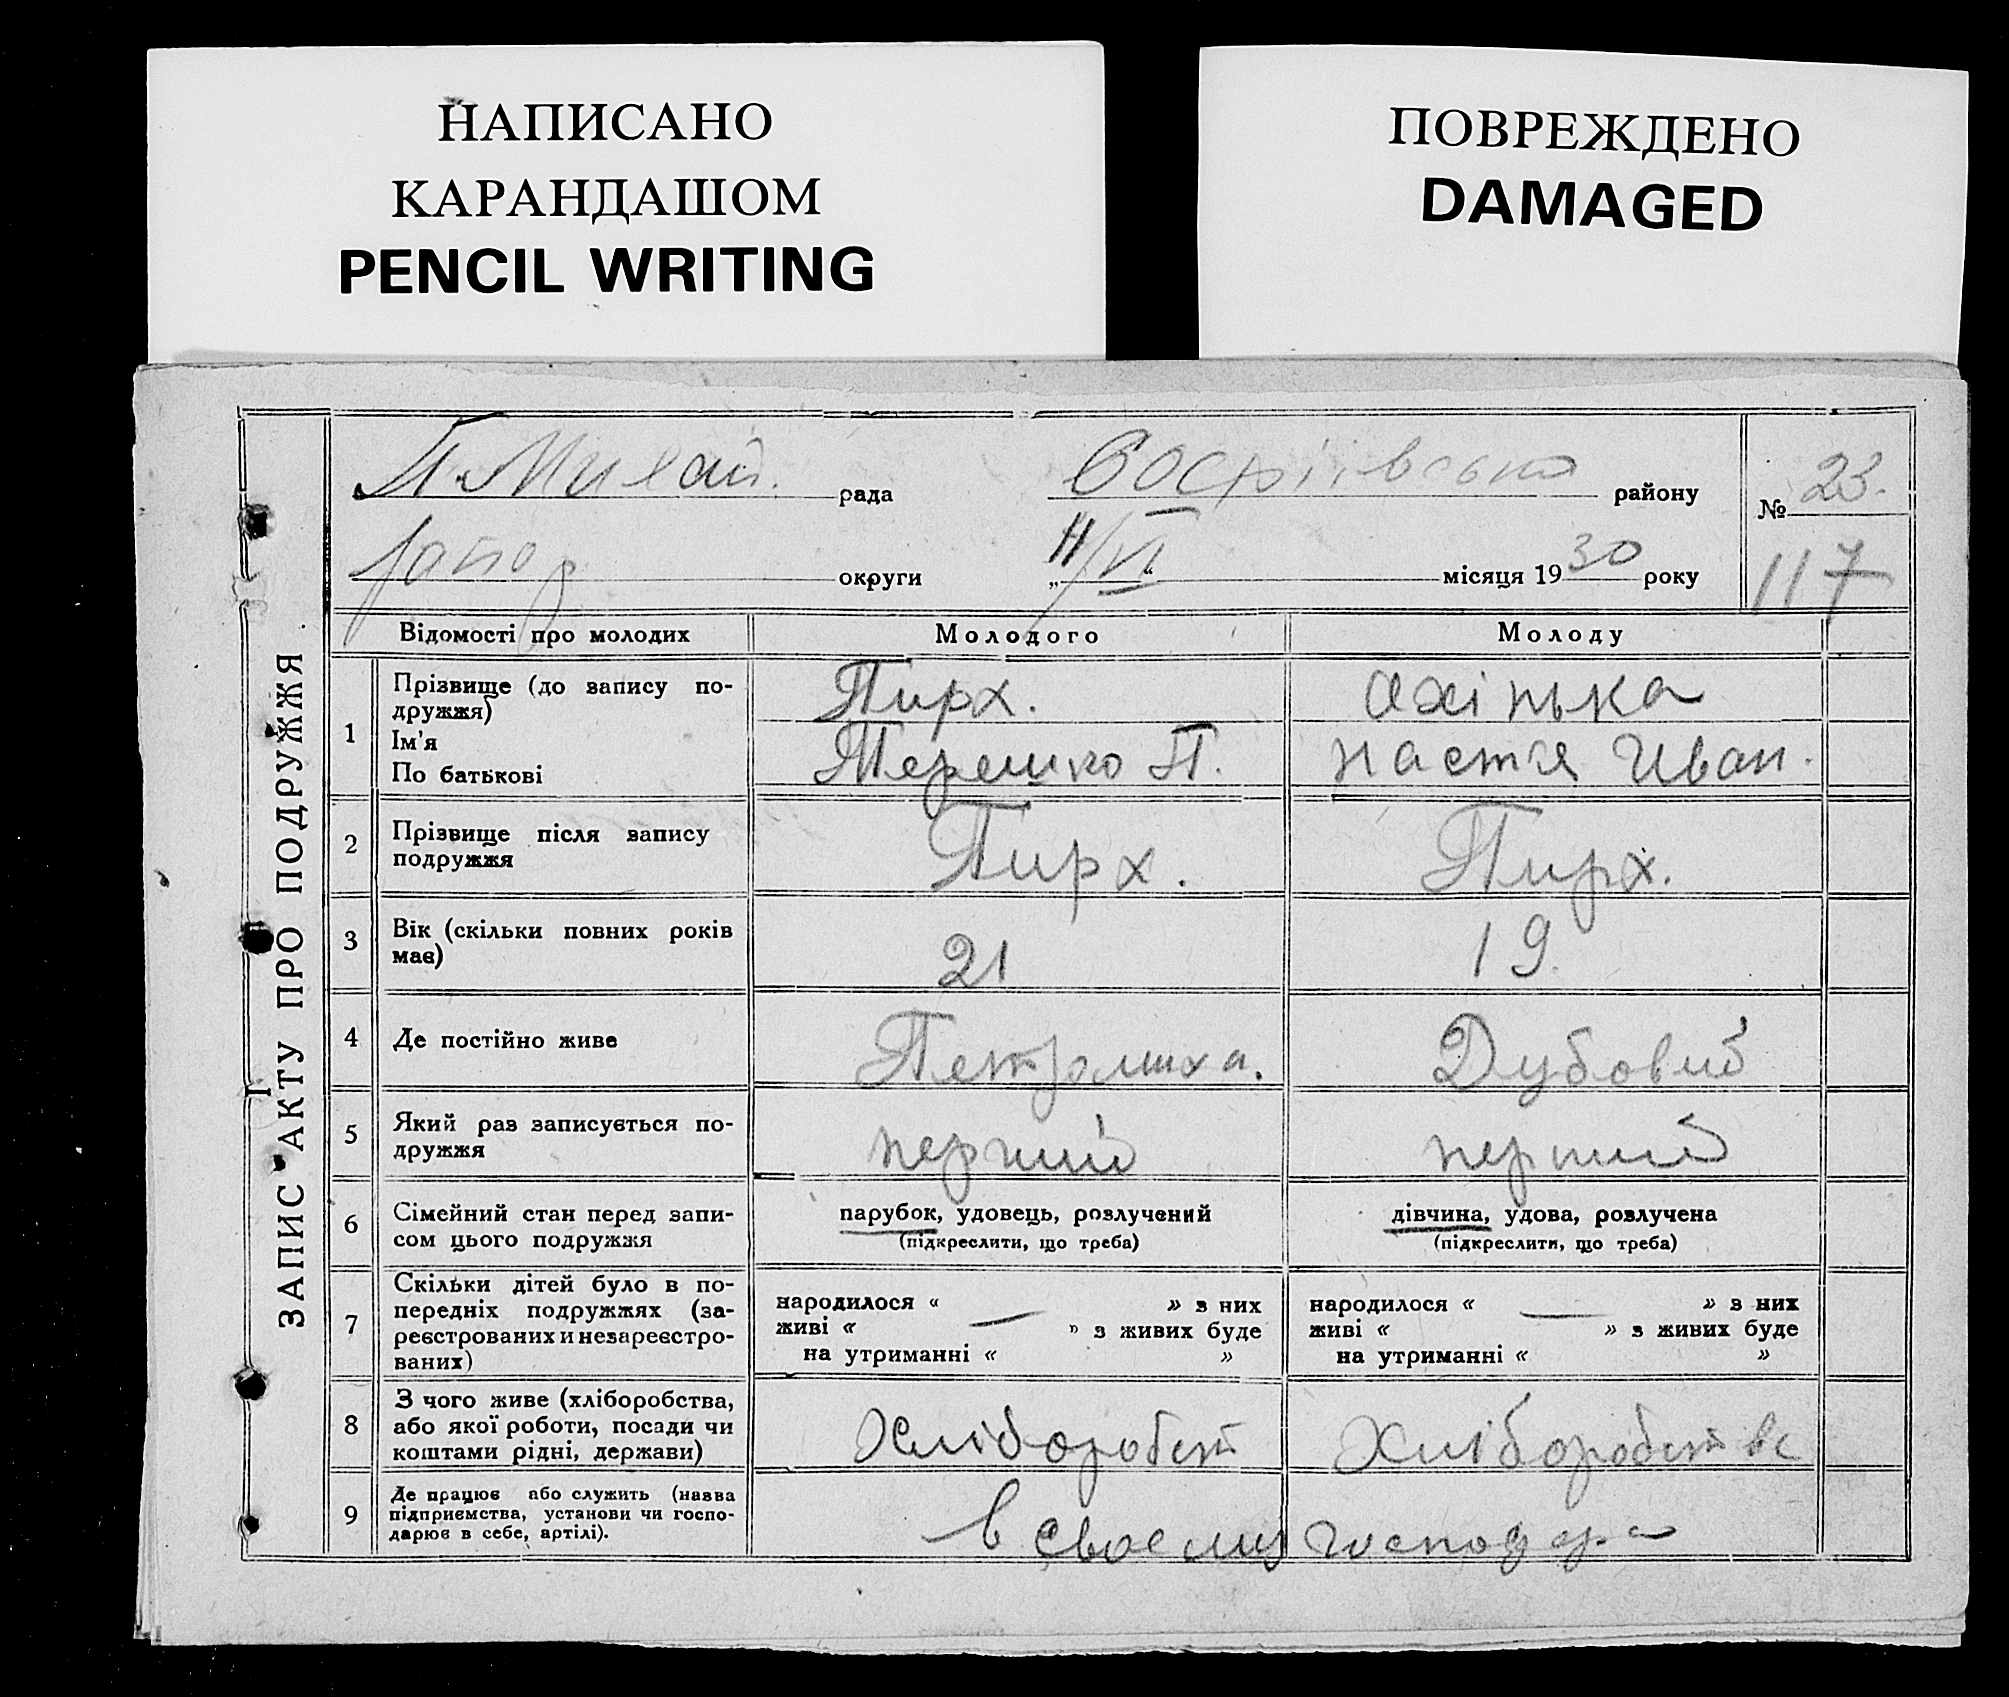 НАПИСАНО
КАРАНДАШОМ
PENCIL WRITING
ПОВРЕЖДЕНО
DAMAGED
ЗАПИС АКТУ ПРО ПОДРУЖЖЯ
П. Михай. рада району № 23.
Запор округи „11/VI“ місяця 1930 року 117
Відомості про молодих Молодого Молоду
1 Прізвище (до запису по-
дружжя) Пирх. Яхінька
Ім'я
По батькові Терешко П. Настя Иван.
2 Прізвище після запису
подружжя Пирх. Пирх.
3 Вік (скільки повних років
має) 21 19.
4 Де постійно живе Дубовий
5 Який раз записується по-
дружжя перший перший
6 Сімейний стан перед запи-
сом цього подружжя парубок, удовець, розлучений дівчина, удова, розлучена
(підкреслити, що треба) (підкреслити, що треба)
7 Скільки дітей було в по-
передніх подружжях (за-
реєстрованих и незареєстро-
ваних)
народилося « — » з них
живі « » з живих буде
на утриманні « »
народилося « — » з них
живі « » з живих буде
на утриманні « »
8 З чого живе (хліборобства,
або якої роботи, посади чи
коштами рідні, держави) Хліборобст Хліборобств
9 Де працює або служить (назва
підприємства, установи чи госпо-
дарює в себе, артілі). в своєму господар